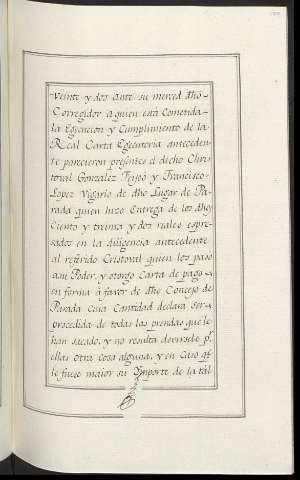 Veinte y dos ante su merced dho
Corregidor a quien está Cometida
la Egecucion y Cumplimiento de la
Real Carta Egecutoria anteceden
te parecieron presentes el decho Chris
toval Gonzalez Feijoó y Francisco
Lopez Vigario de dho Lugar de Pa
rada quien hizo Entrega de los dhos
Ciento y treinta y dos reales espre
sados en la diligencia antecedente
al referido Cristoval quien los paso
asu Poder, y otorgo Carta de pago
en forma á favor de dho Concejo de
Parada Cuia Cantidad declara ser
procedida de todas las prendas que le
han sacado, y no resulta deversele pr.
ellas otra cosa alguna, y en Caso qe
le fuese maior su Ymporte de la tál